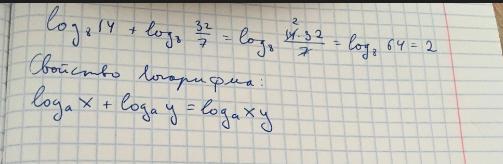 log₈ 14 + log₈ 32/7 = log₈ 14·32/7 2 = log₈ 64 = 2
Свойство логарифма:
logₐ x + logₐ y = logₐ xy